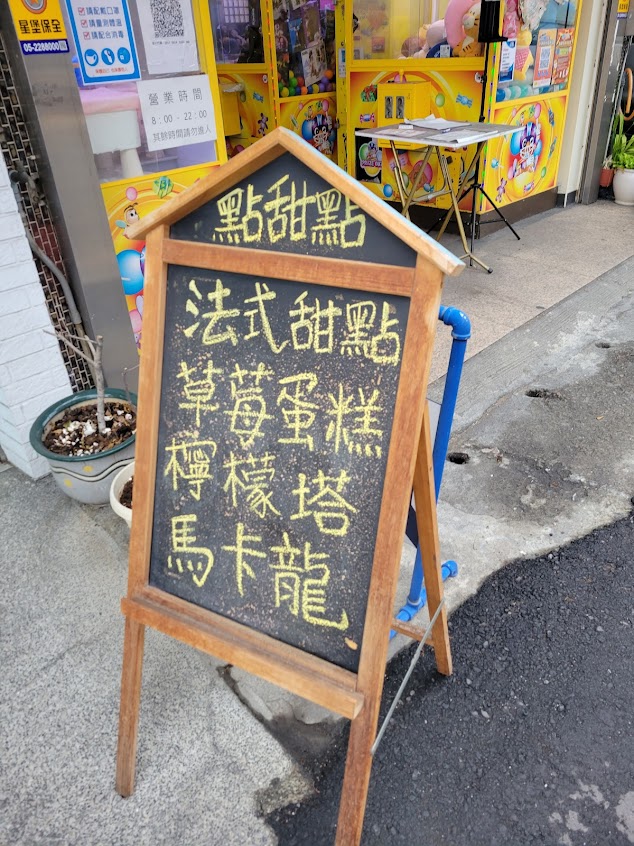 星堡保全
05-2288000
請戴口罩
請量測體溫
請配合消毒
營業時間
8:00-22:00
其餘時間請勿進入
點甜點
法式甜點
草莓蛋糕
檸檬塔
馬卡龍